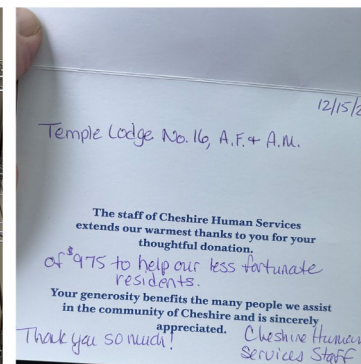 12/15/2
Temple Lodge No. 16, A.F. & A.M.
The staff of Cheshire Human Services
extends our warmest thanks to you for your
thoughtful donation.
of $975 to help our less fortunate
residents.
Your generosity benefits the many people we assist
in the community of Cheshire and is sincerely
appreciated.
Thank you so much!
Cheshire Human
Services Staff